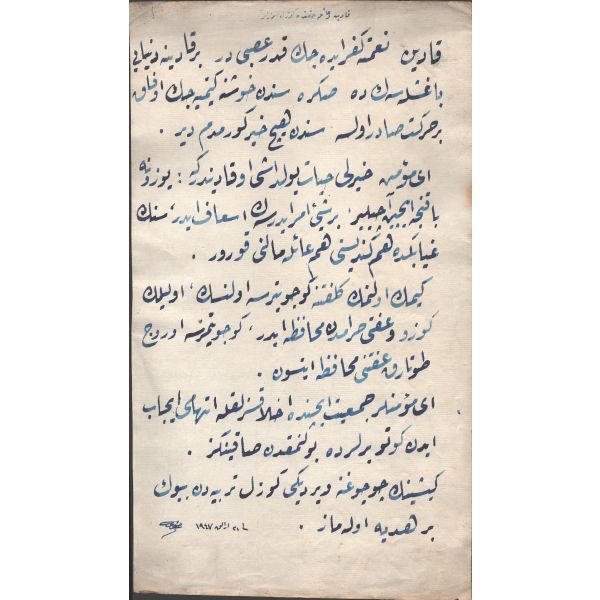 قادین نعمته کفر ایده جك قدر عصبی در برقادینه دنیایی
باغشلسه‌ك ده صکره سندن خوشنه کتمیه جك اوفاق
برحرکت صادر اولسه سندن هیچ خیر کورمدم دیر .
ای مؤمن خیرلی حیات یولداشی او قادیندرکه : یوزونه
باقنجه ایچین آچیلیر ، بر شیٔ امر ایدرسه‌ك اسعاف ایدر ، سنك
غیابکده هم کندیسنی هم عائله مالنی قورور .
کیمك اولنمك کلفتنه کوجویترسه اولنسك ، اویلیلك
کوزو وعفتی حرامدن محافظه ایدر ، کوجویتمزسه اوروج
طوتارق عفتنی محافظه ایتسون .
ای مؤمنلر جمعیت ایچنده اخلاقسزلقله اتهامی ایجاب
ایدن کوتو یرلرده بولنمقدن صاقینکز .
کیشینك چوجوغنه ویردیکی کوزل تربیه دن بیوك
بر هدیه اوله ماز .
١٩٦٧